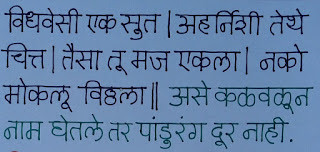 विधवेसी एक सुत | अहर्निशी तेथे
चित्त | तैसा तू मज एकला | नको
मोकलू विठ्ठला || असे कळवळून
नाम घेतले तर पांडुरंग दूर नाही.